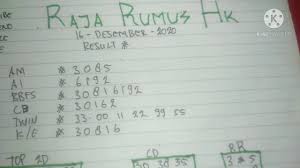 RAJA RUMUS HK
16 - DESEMBER - 2020
RESULT *
AM * 3085
AI * 6192
BBFS * 30816192
CB * 30162
TWIN * 33 00 11 22 99 55
K/E * 30816
TOP 2D
CD
BB
30 30 35
3 * 5
KINEMASTER